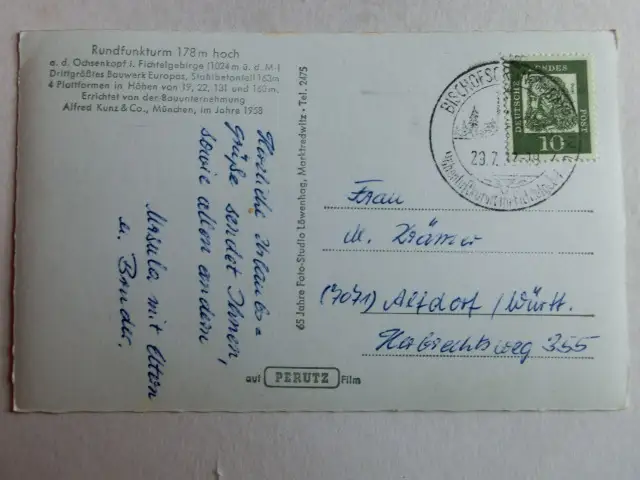 Rundfunkturm 178m hoch
a. d. Ochsenkopf i. Fichtelgebirge (1024 m ü. d. M.)
Drittgrößtes Bauwerk Europas, Stahlbetonteil 163m
4 Plattformen in Höhen von 19, 22, 131 und 163m.
Errichtet von der Bauunternehmung
Alfred Kunz & Co., München, im Jahre 1958
Herzliche Urlaubs=
Grüße sendet Ihnen,
sowie allen andern
Ursula mit Eltern
u. Bruder.
65 Jahre Foto-Studio Löwenhag, Marktredwitz · Tel. 2475
auf PERUTZ Film
BISCHOFSGRÜN
23.7.
DEUTSCHE BUNDESPOST
10
Frau
M. Krämer
(7071) Altdorf/Württ.
355